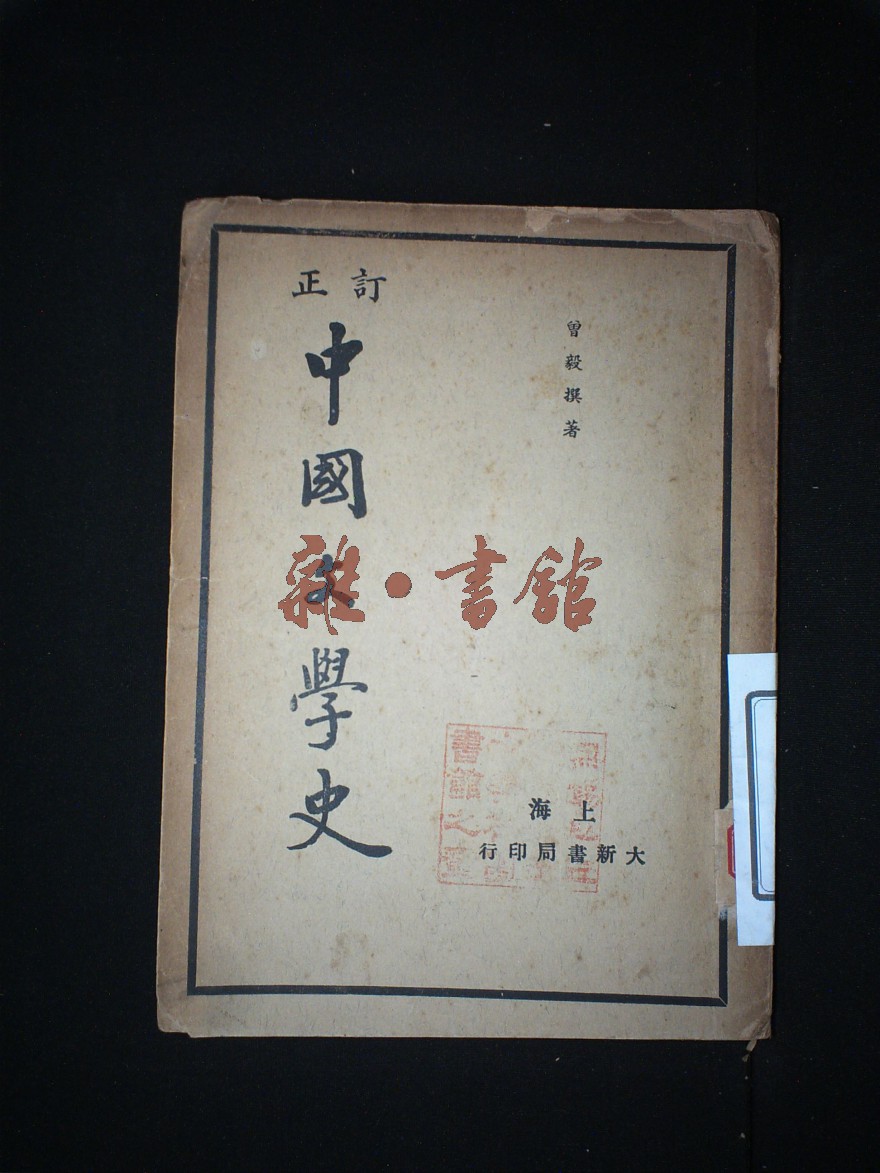 曾毅撰著
訂正
中國文學史
雜·書館
上海
大新書局印行
書館之章